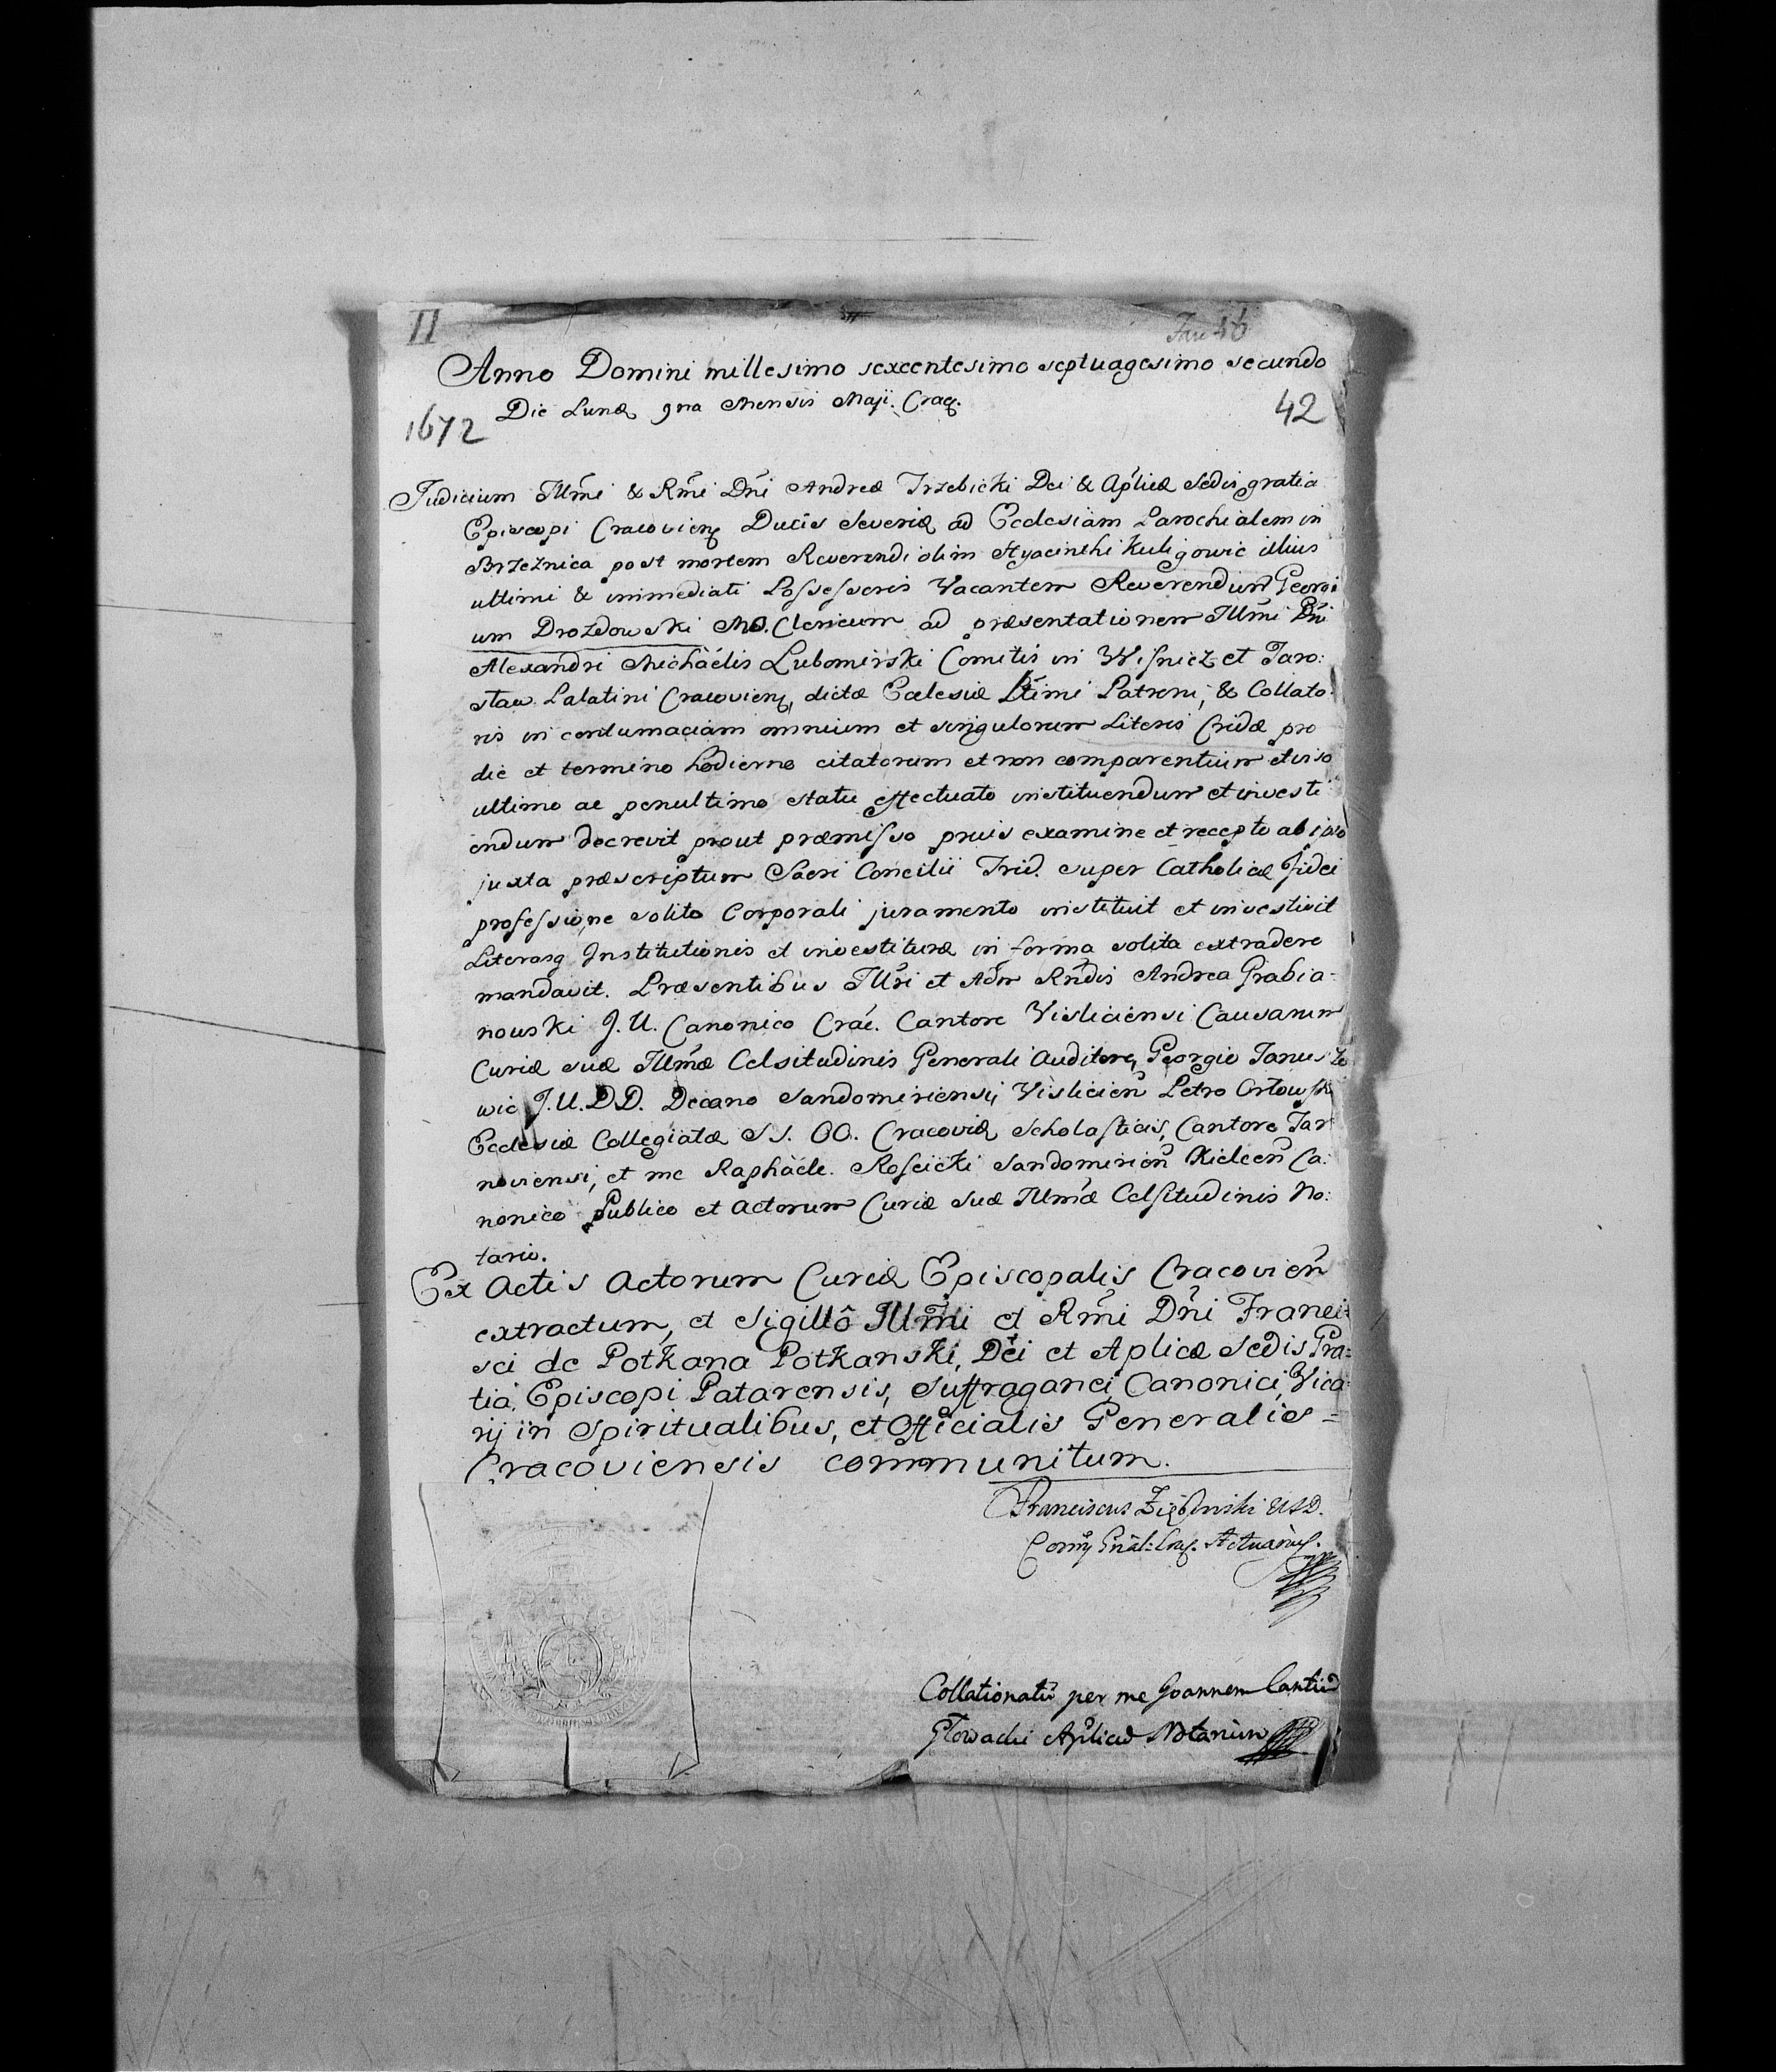 II
Jan 46
Anno Domini millesimo sexcentesimo septuagesimo secundo
Die Lunæ 9na Mensis Maji. Cracq.
42
1672
Judicium Illmi & Rmi Dni Andreæ Trzebicki Dei & Aplicæ Sedis gratia
Episcopi Cracovienq Ducis Severiæ ad Ecclesiam Parochialem in
Brzeznica post mortem Reverendi olim Hyacinthi Kuligowic illius
ultimi & immediati Possessoris Vacantem Reverendum Georgi
um Drozdowski MO. Clericum ad præsentationem Illmi Dni
Alexandri Michaelis Lubomirski Comitis in Wisnicz et Jaro:
slaw Palatini Cracovienq dictæ Ecclesiæ Ltimi Patroni, & Collato
ris in contumaciam omnium et singulorum Literis Cridæ pro
die et termino hodierno citatorum et non comparentium et viso
ultimo ac penultimo statu effectuato instituendum et investi
endum decrevit prout præmisso prvis examine et recepto ab ipso
juxta præscriptum Sacri Concilii Trid. super Catholicæ fidei
professione solito Corporali juramento instituit et investivit
Literasq Institutionis et investituræ in forma solita extradere
mandavit. Præsentibus Illri et Adm Rndis Andrea Grabia-
nowski J.U. Canonico Crac. Cantore Visliciensi Causarum
Curiæ suæ Illmæ Celsitudinis Generali Auditore, Georgio Janusze
wic J.U.DD. Decano Sandomiriensi, Vislicien Petro Orłowski
Ecclesiæ Collegiatæ SS. OO. Cracoviæ Scholasticis, Cantore Tar
noviensi, et me Raphäele Roscicki Sandomirien Kielcen Ca:
nonico Publico et Actorum Curiæ Suæ Illmæ Celsitudinis No:
tario.
Ex Actis Actorum Curiæ Episcopalis Cracovien
extractum, et Sigillô Illmi et Rmi Dni Franci:
sci de Potkana Potkanski, Dei et Aplicæ Sedis Gra=
tia, Episcopi Patarensis, Suffraganei, Canonici, Vica
rij in Spiritualibus, et Officialis Generalis =
Cracoviensis communitum.
Franciscus
Gnal: Craq. Actuariuq.
Collationatu per me Joannem Cantiu
Głowacki Aplicu Notarium